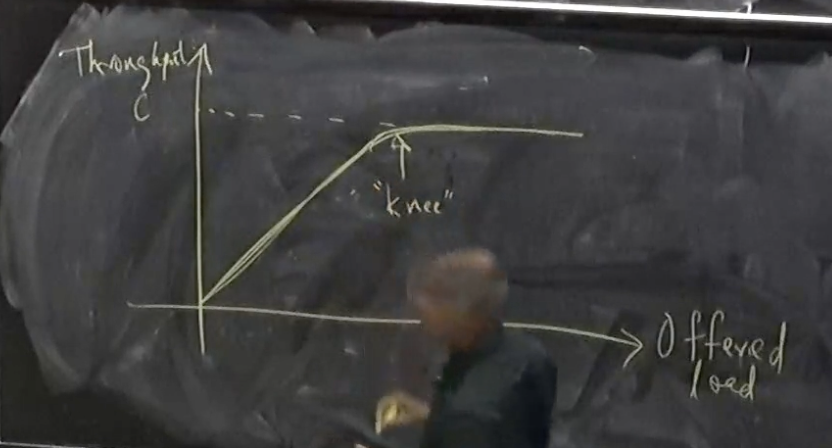 Throughput
C
"knee"
Offered
load